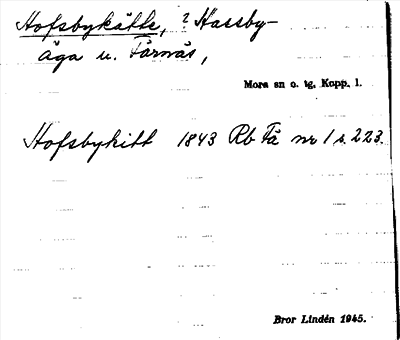 Hofsbykätte, ? Hassby-
äga u. Färnäs,
Mora sn o. tg, Kopp. l.
Hofsbykitt 1843 Rb Få nr 1 s. 223.
Bror Lindén 1945.